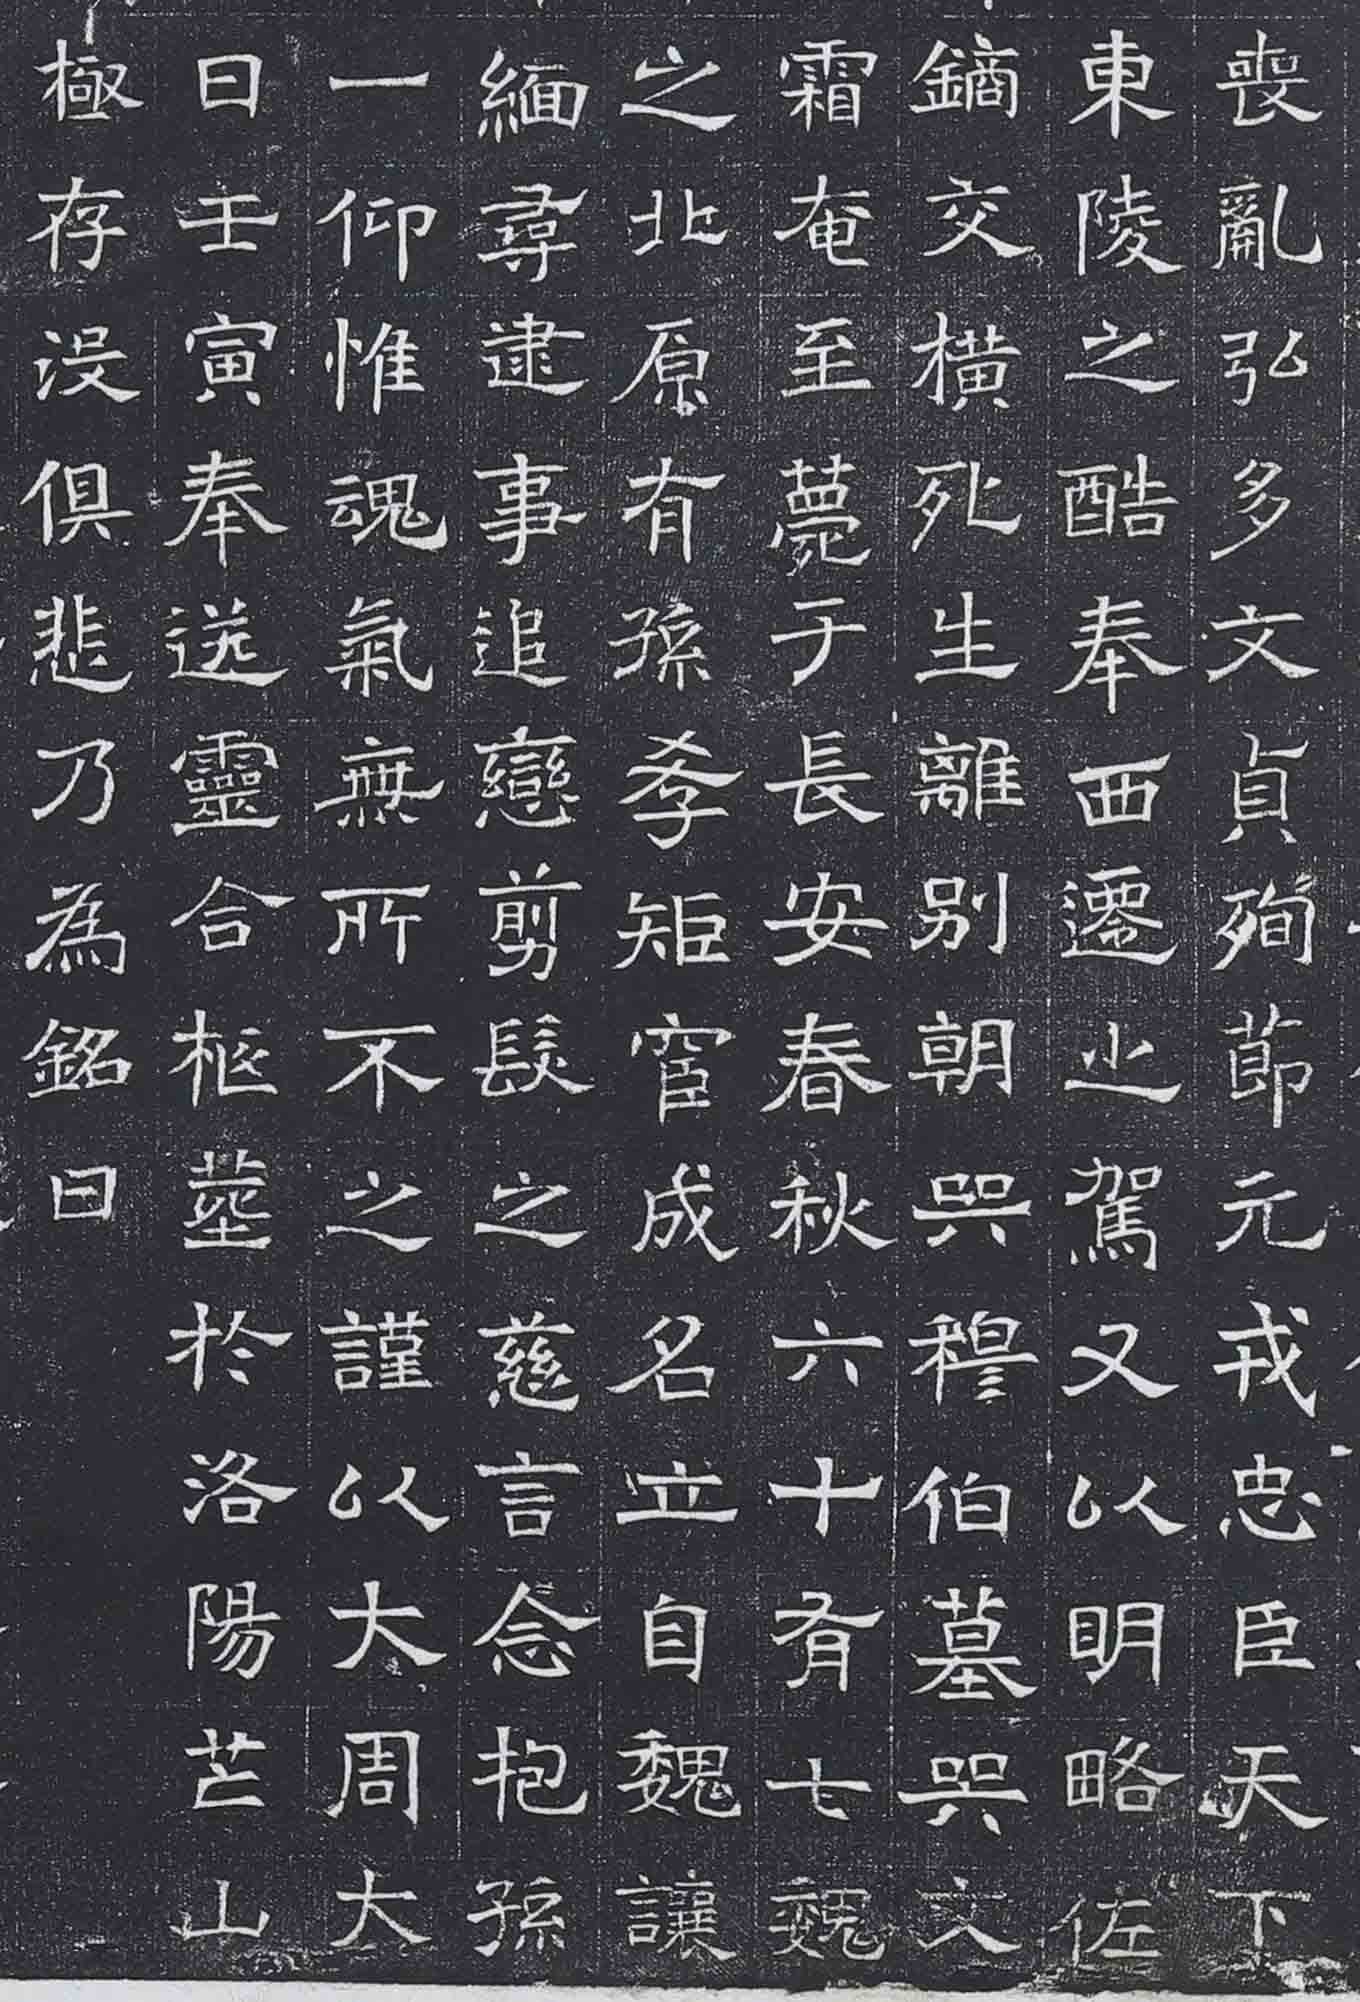 喪亂弘多文貞殉節元戎忠臣天下
東陵之酷奉西遷之駕又以明略佐
鏑交横死生離別朝哭穆伯墓哭文
霜奄至薨于長安春秋六十有七魏
之北原有孫孝矩宦成名立自魏讓
緬尋逮事追戀剪髮之慈言念抱孫
一仰惟魂氣無所不之謹以大周大
日壬寅奉送靈合柩塟於洛陽芒山
極存没俱悲乃為銘曰